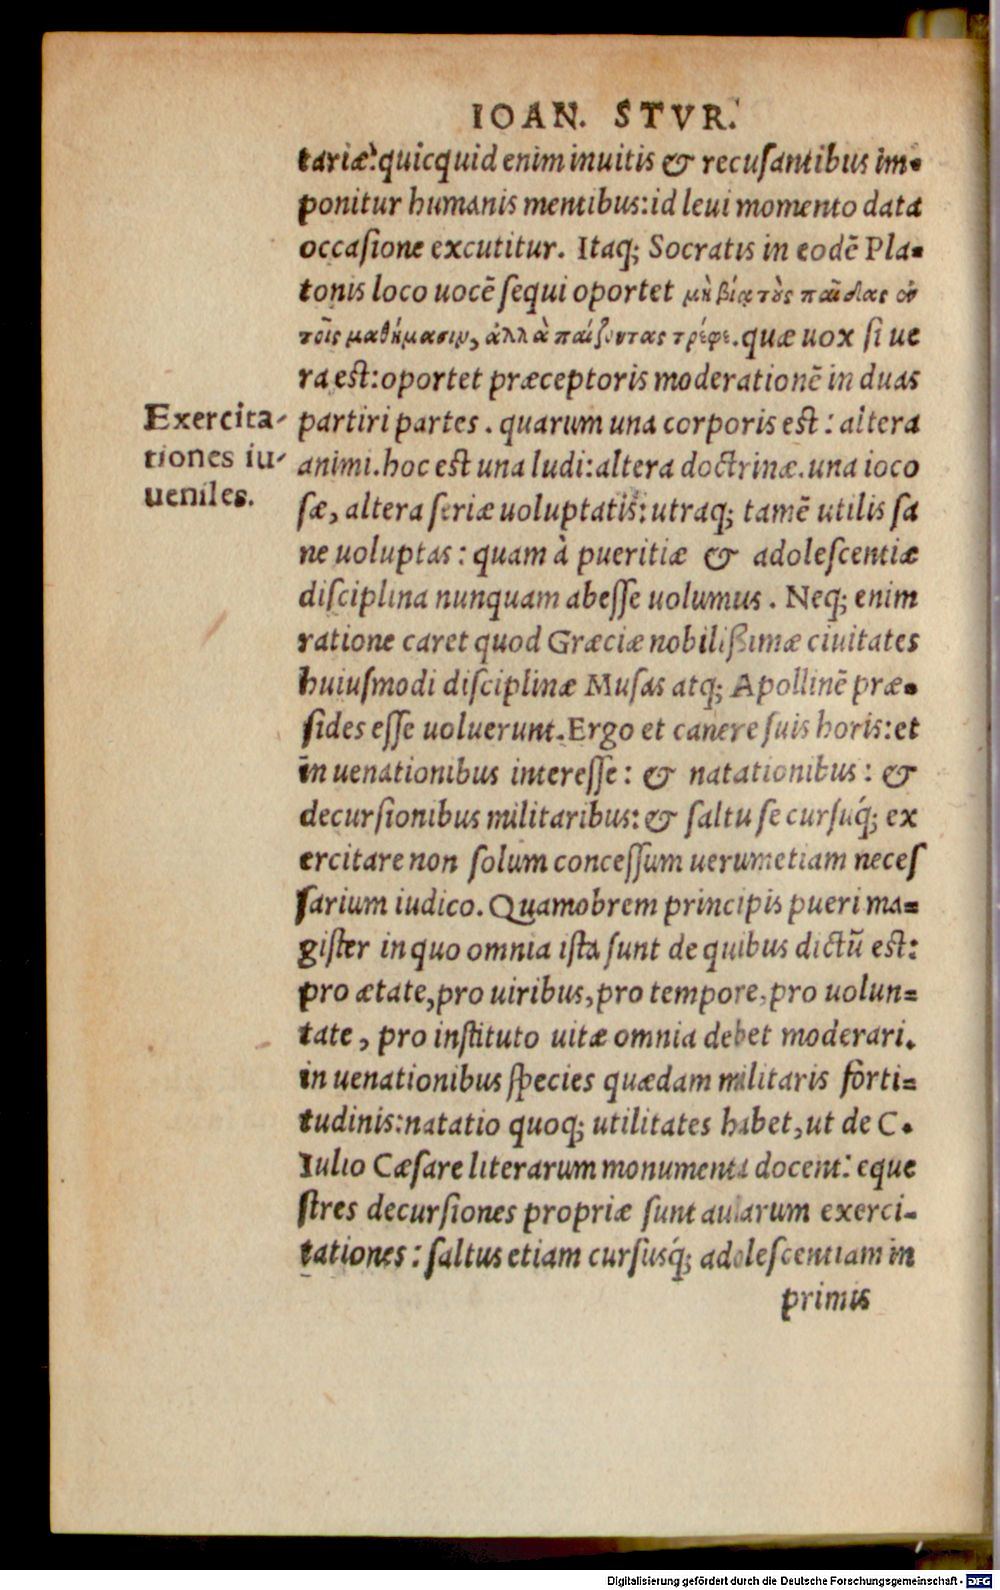 IOAN. STVR.
tariæ: quicquid enim inuitis & recusantibus im-
ponitur humanis mentibus: id leui momento data
occasione excutitur. Itaq; Socratis in eodē Pla-
tonis loco uocē sequi oportet μὴ βίᾳ τοὺς παῖδας ἐν
τοῖς μαθήμασιν, ἀλλὰ παίζοντας τρέφε. quæ uox si ue
ra est: oportet præceptoris moderationē in duas
Exercita-
tiones iu-
ueniles.
partiri partes. quarum una corporis est: altera
animi. hoc est una ludi: altera doctrinæ. una ioco
sæ, altera seriæ uoluptatis: utraq; tamē utilis sa
ne uoluptas: quam à pueritiæ & adolescentiæ
disciplina nunquam abesse uolumus. Neq; enim
ratione caret quod Græciæ nobilißimæ ciuitates
huiusmodi disciplinæ Musas atq; Apollinē præ-
sides esse uoluerunt. Ergo et canere suis horis: et
in uenationibus interesse: & natationibus: &
decursionibus militaribus: & saltu se cursuq́; ex
ercitare non solum concessum uerumetiam neces
sarium iudico. Quamobrem principis pueri ma-
gister in quo omnia ista sunt de quibus dictū est:
pro ætate, pro uiribus, pro tempore, pro uolun-
tate, pro instituto uitæ omnia debet moderari.
in uenationibus species quædam militaris forti-
tudinis: natatio quoq; utilitates habet, ut de C.
Iulio Cæsare literarum monumenta docent: eque
stres decursiones propriæ sunt aularum exerci-
tationes: saltus etiam cursusq́; adolescentiam in
primis
Digitalisierung gefördert durch die Deutsche Forschungsgemeinschaft - DFG